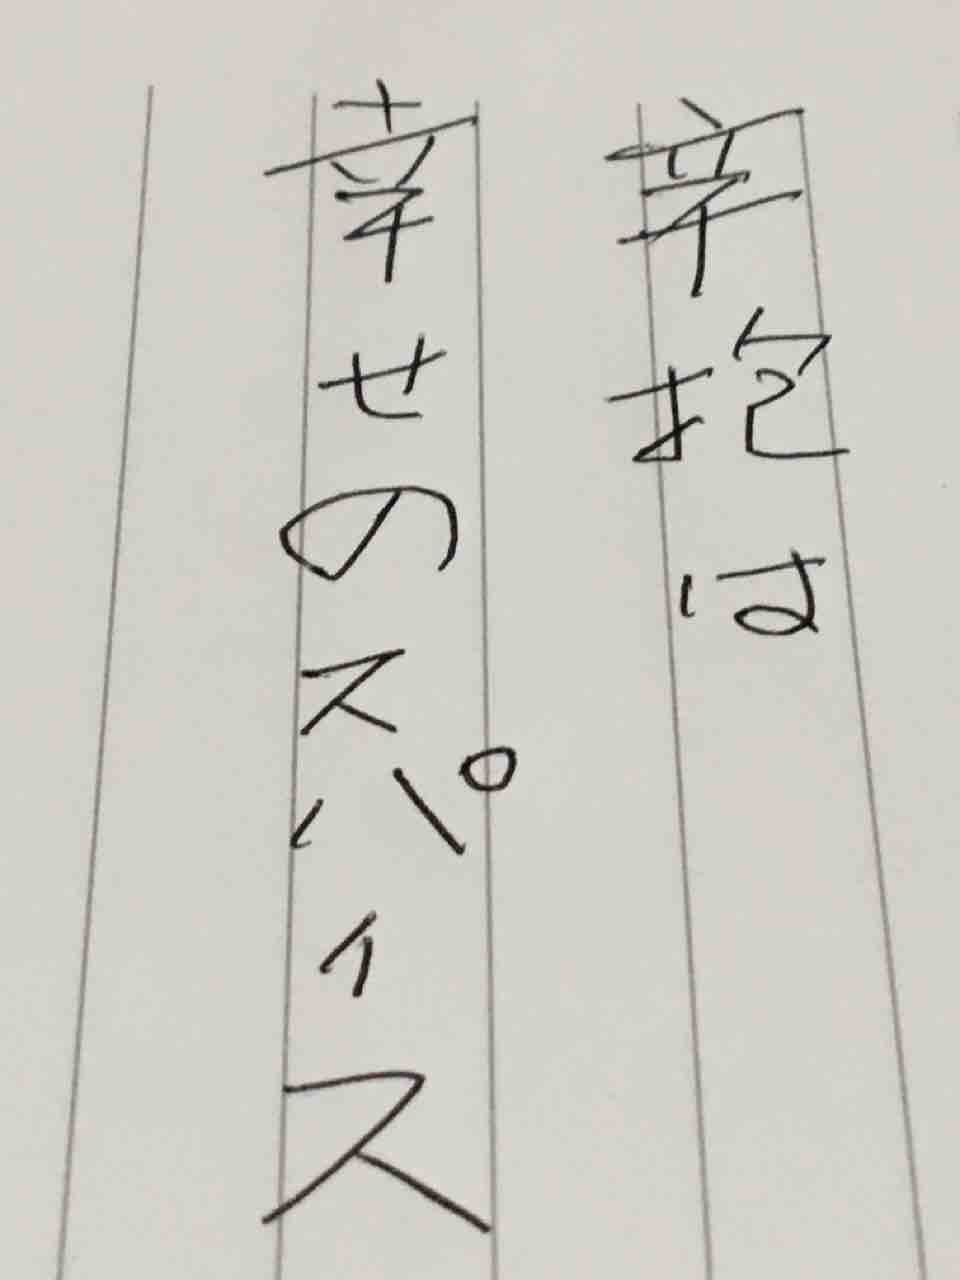 辛抱は
幸せのスパイス